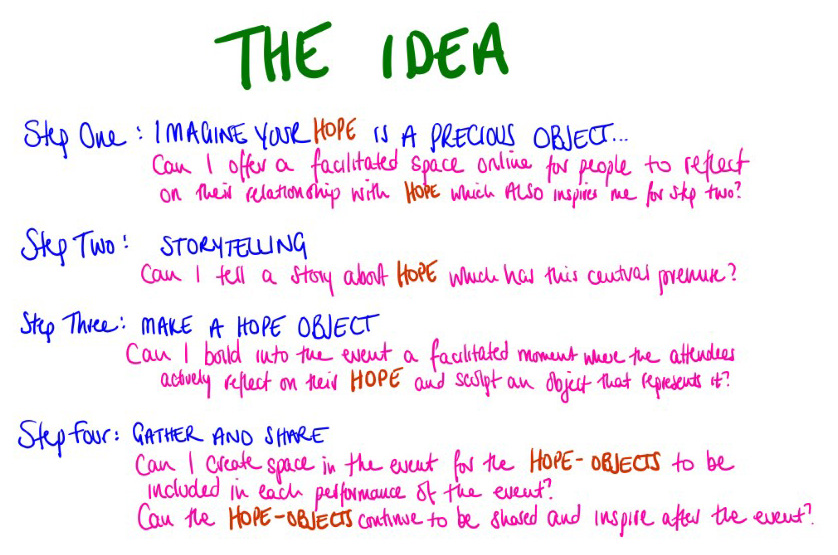 THE IDEA
Step One : IMAGINE YOUR HOPE IS A PRECIOUS OBJECT...
Can I offer a facilitated space online for people to reflect
on their relationship with HOPE which ALSO inspires me for step two?
Step Two : STORYTELLING
Can I tell a story about HOPE which has this central premise?
Step Three : MAKE A HOPE OBJECT
Can I build into the event a facilitated moment where the attendees
actively reflect on their HOPE and sculpt an object that represents it?
Step Four : GATHER AND SHARE
Can I create space in the event for the HOPE-OBJECTS to be
included in each performance of the event?
Can the HOPE-OBJECTS continue to be shared and inspire after the event?